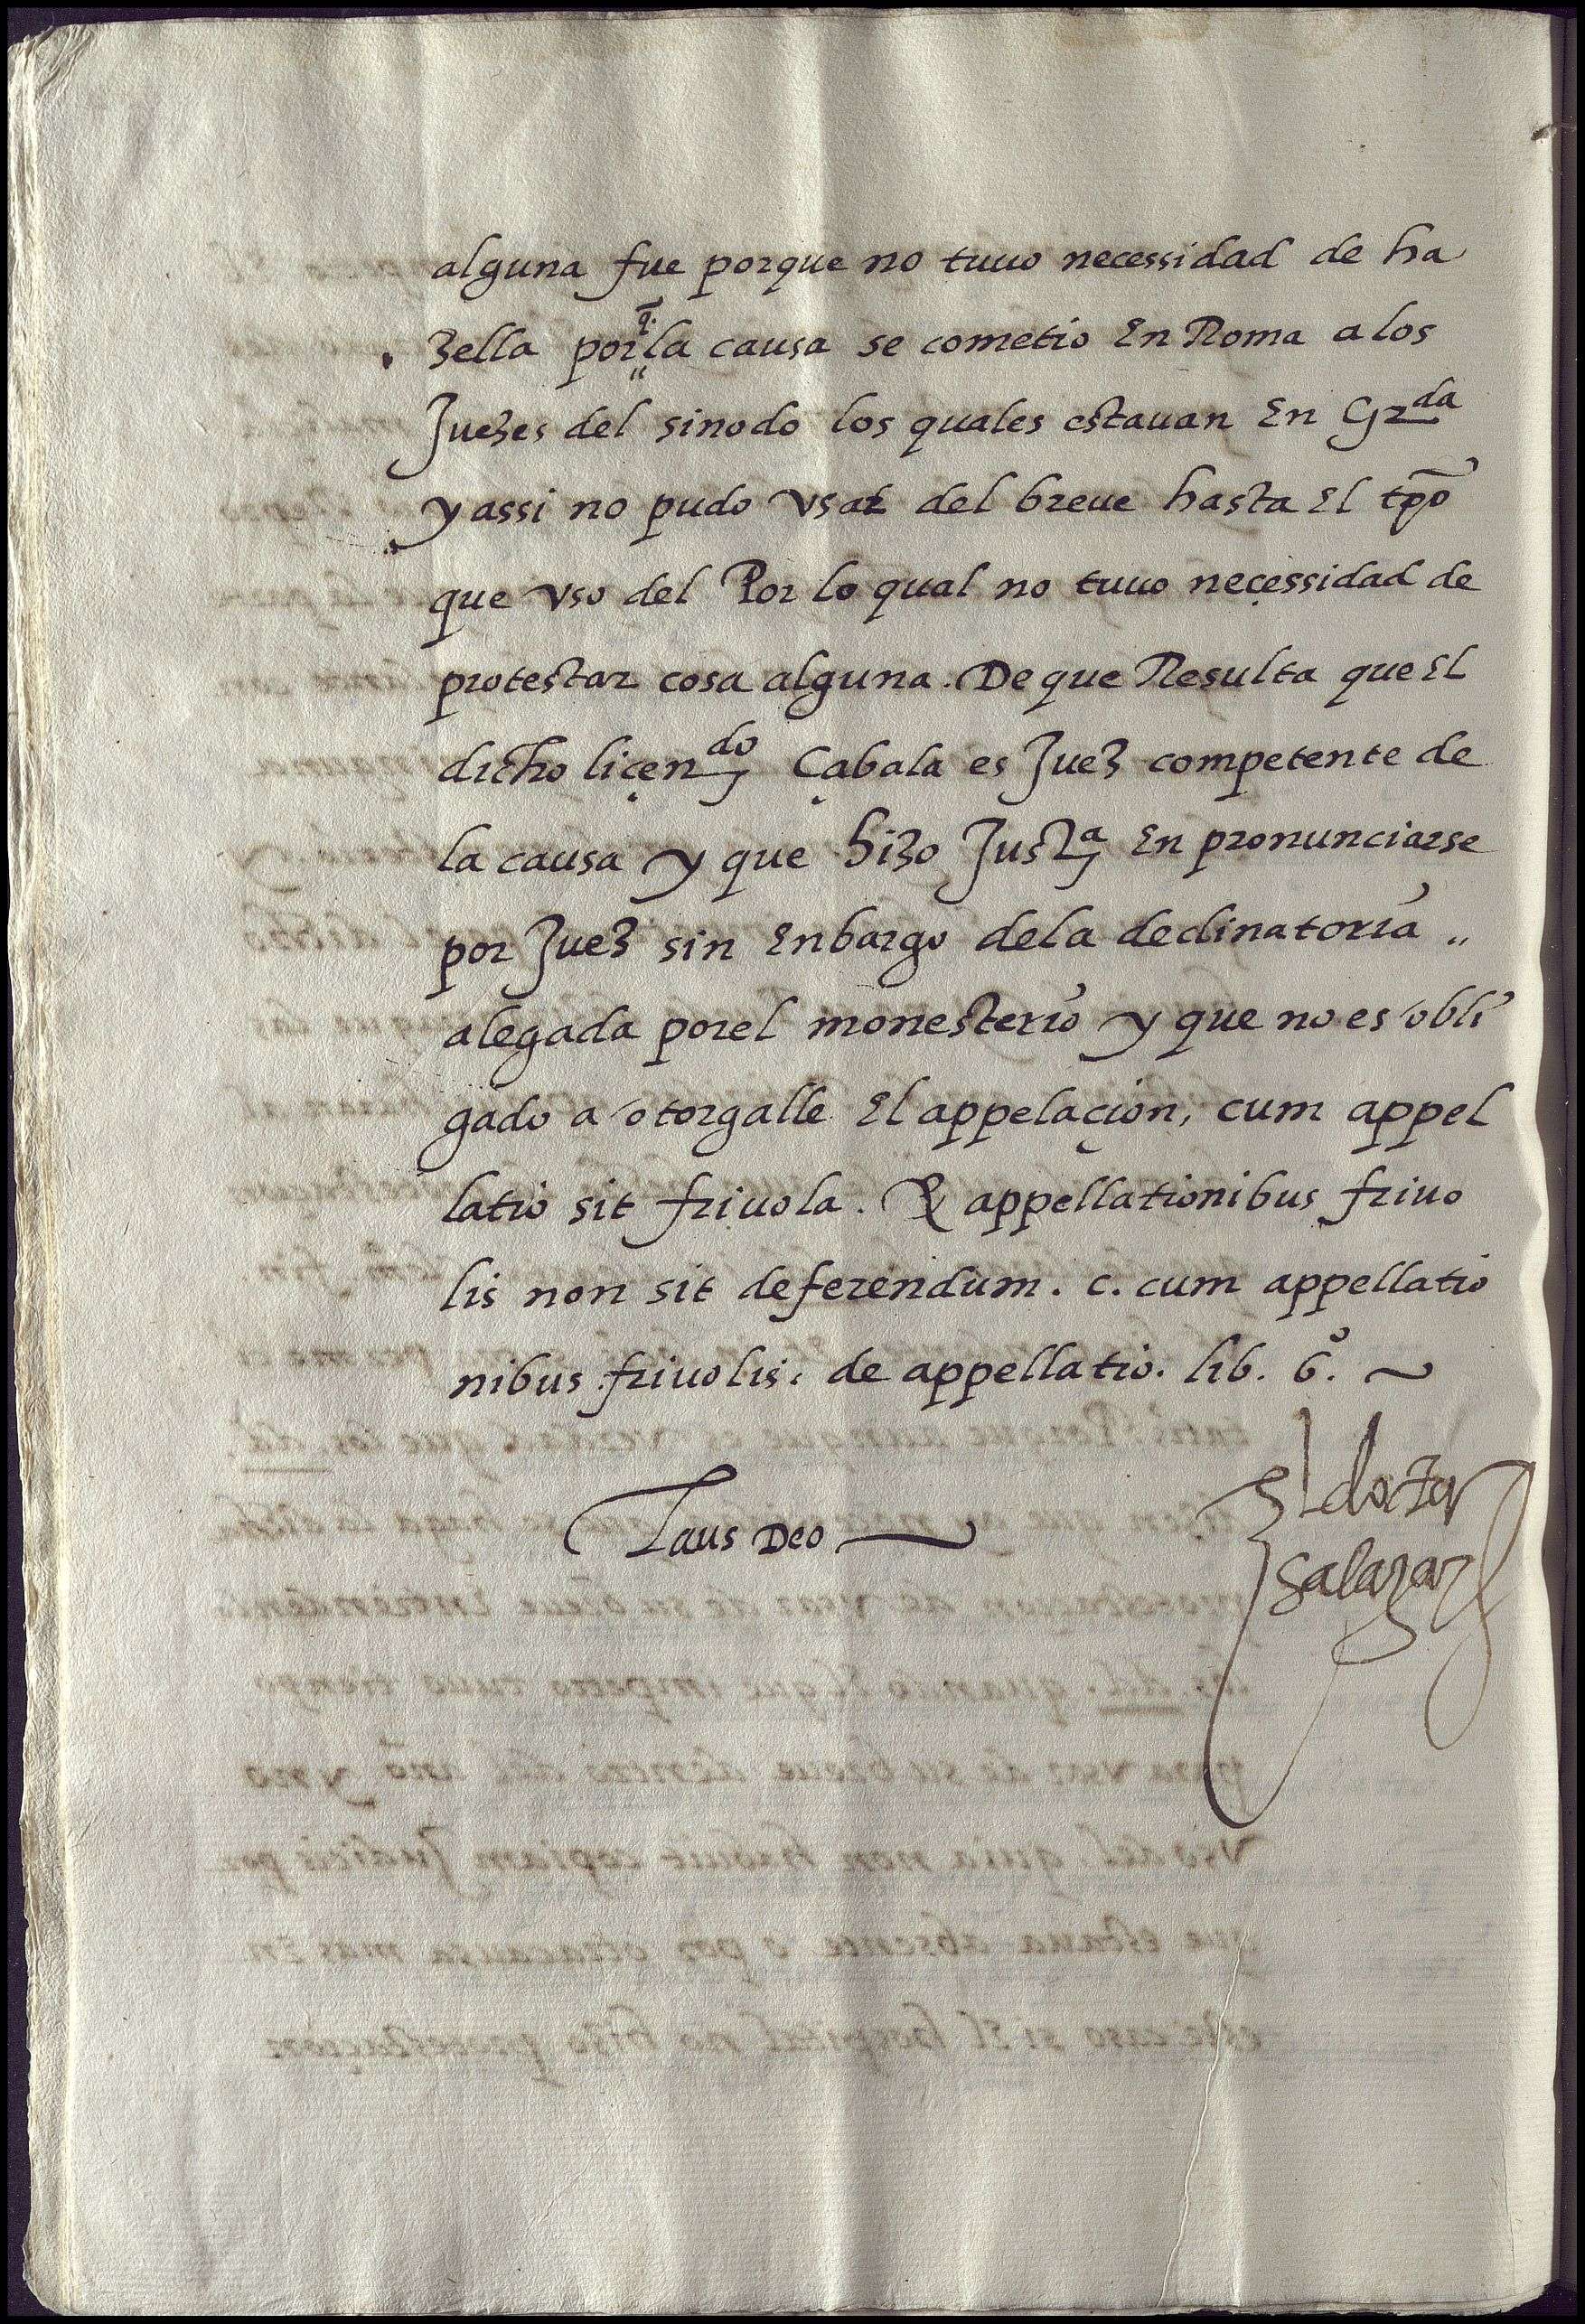 alguna fue porque no tuuo necessidad de ha
zella porq̃ la causa se cometio En Roma a los
Juezes del sinodo los quales estauan En Grda
y assi no pudo vsar del breue hasta El tp̃o
que vso del Por lo qual no tuuo neçessidad de
protestar cosa alguna. De que Resulta que El
dicho liçendo Çabala es Juez competente de
la causa y que hizo Justa En pronunciarse
por Juez sin Enbargo dela declinatoria
alegada porel monesterio y que no es obli
gado a otorgalle El appelaçion, cum appel
latio sit friuola. & appellationibus friuo
lis non sit deferendum. c. cum appellatio
nibus friuolis. de appellatio. lib. 6º. ~
Laus Deo
El doctor
Salazar